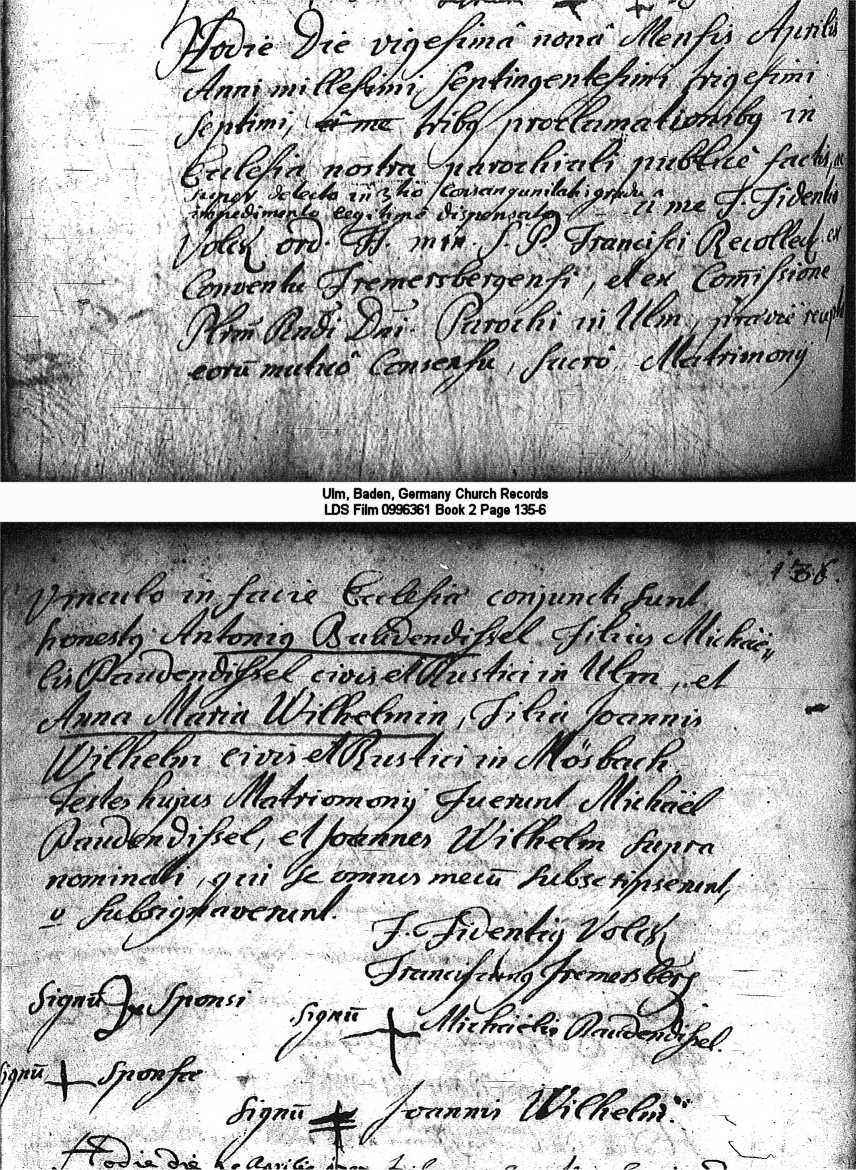 Hodie Die vigesimâ nonâ Mensis Aprilis
Anni millesimi septingentesimi trigesimi
septimi, tribg proclamationibg in
Ecclesia nostra parochiali publicè factis,
super detecto in 3tio Consanguinitatis gradu
impedimento legitime dispensato â me F. Fidentio
Volck ord. FF. min. S. P. Francisci Recollect. ex
Conventu Fremersbergensi, et ex Com̄issione
Plrm Rndi Dni. Parochi in Ulm,
eorū mutuô Consensu, sacrô Matrimonÿ
Ulm, Baden, Germany Church Records
LDS Film 0996361 Book 2 Page 135-6
136.
Vinculo in facie Ecclesiæ conjuncti sunt
honestg Antonig Baudendissel Filius Michaë-
lis Baudendissel civis et Rustici in Ulm, et
Anna Maria Wilhelmin, Filia Joannis
Wilhelm civis et Rustici in Mösbach
Testes hujus Matriomonÿ Fuerunt Michaël
Baudendissel, et Joannes Wilhelm supra
nominati, qui se omnes mecū subscripserunt,
v subsignaverunt.
F. Fidentig Volck
Franciscang Fremersberg
Signū Sponsi
Signū + Michaëlis Baudendissel.
Signū + Sponsæ
Signū Joannis Wilhelm.
Hodie die Aprilis